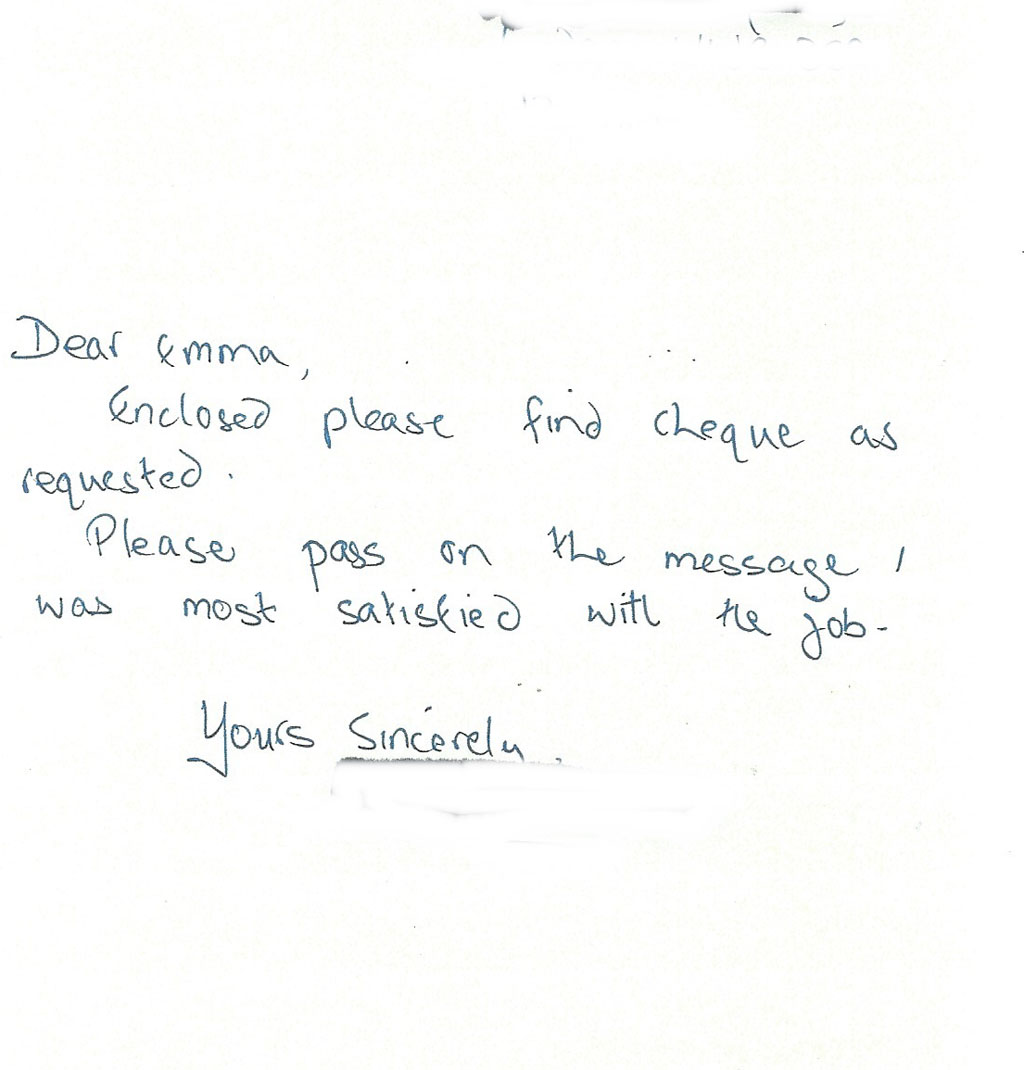 Dear Emma,
Enclosed please find cheque as
requested.
Please pass on the message I
was most satisfied with the job.
Yours Sincerely,